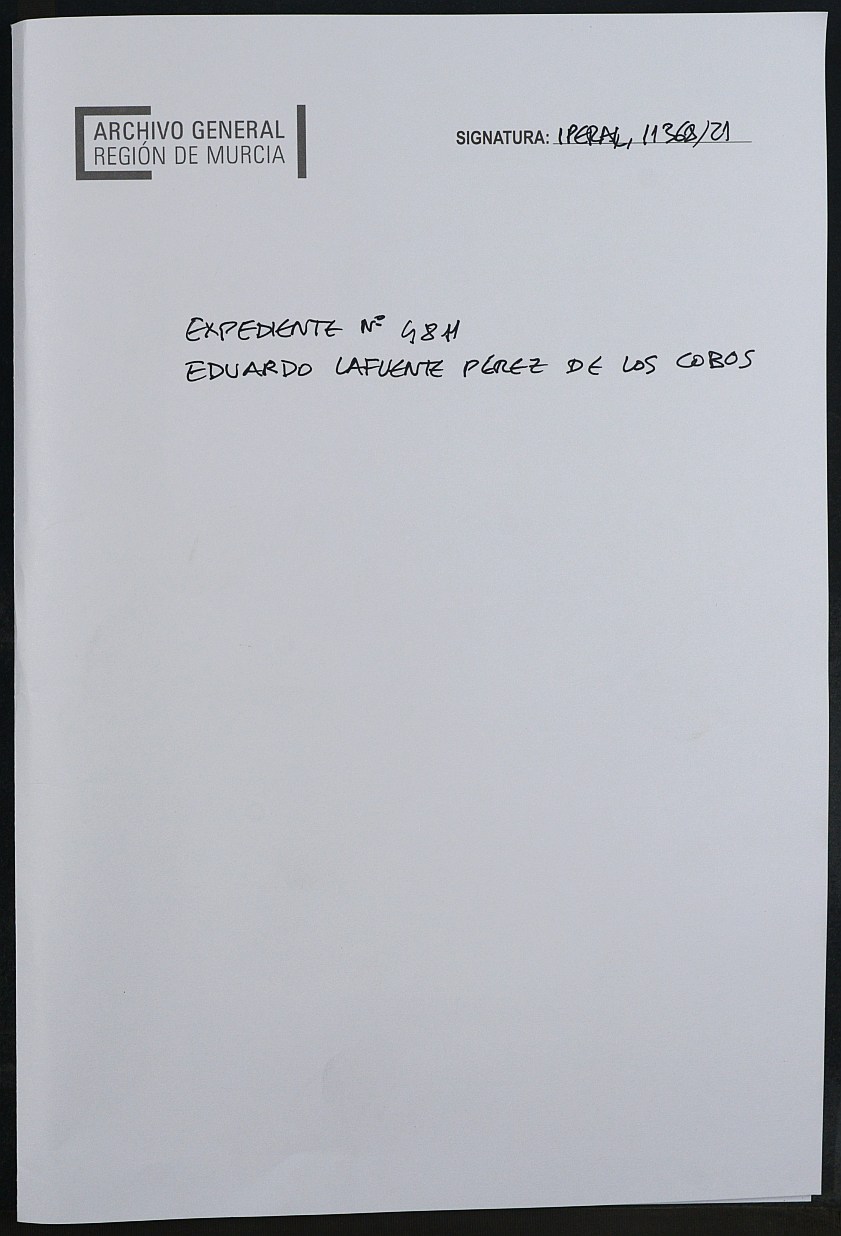 ARCHIVO GENERAL
REGIÓN DE MURCIA
SIGNATURA: IPERAL, 11368/21
EXPEDIENTE Nº 4811
EDUARDO LAFUENTE PÉREZ DE LOS COBOS